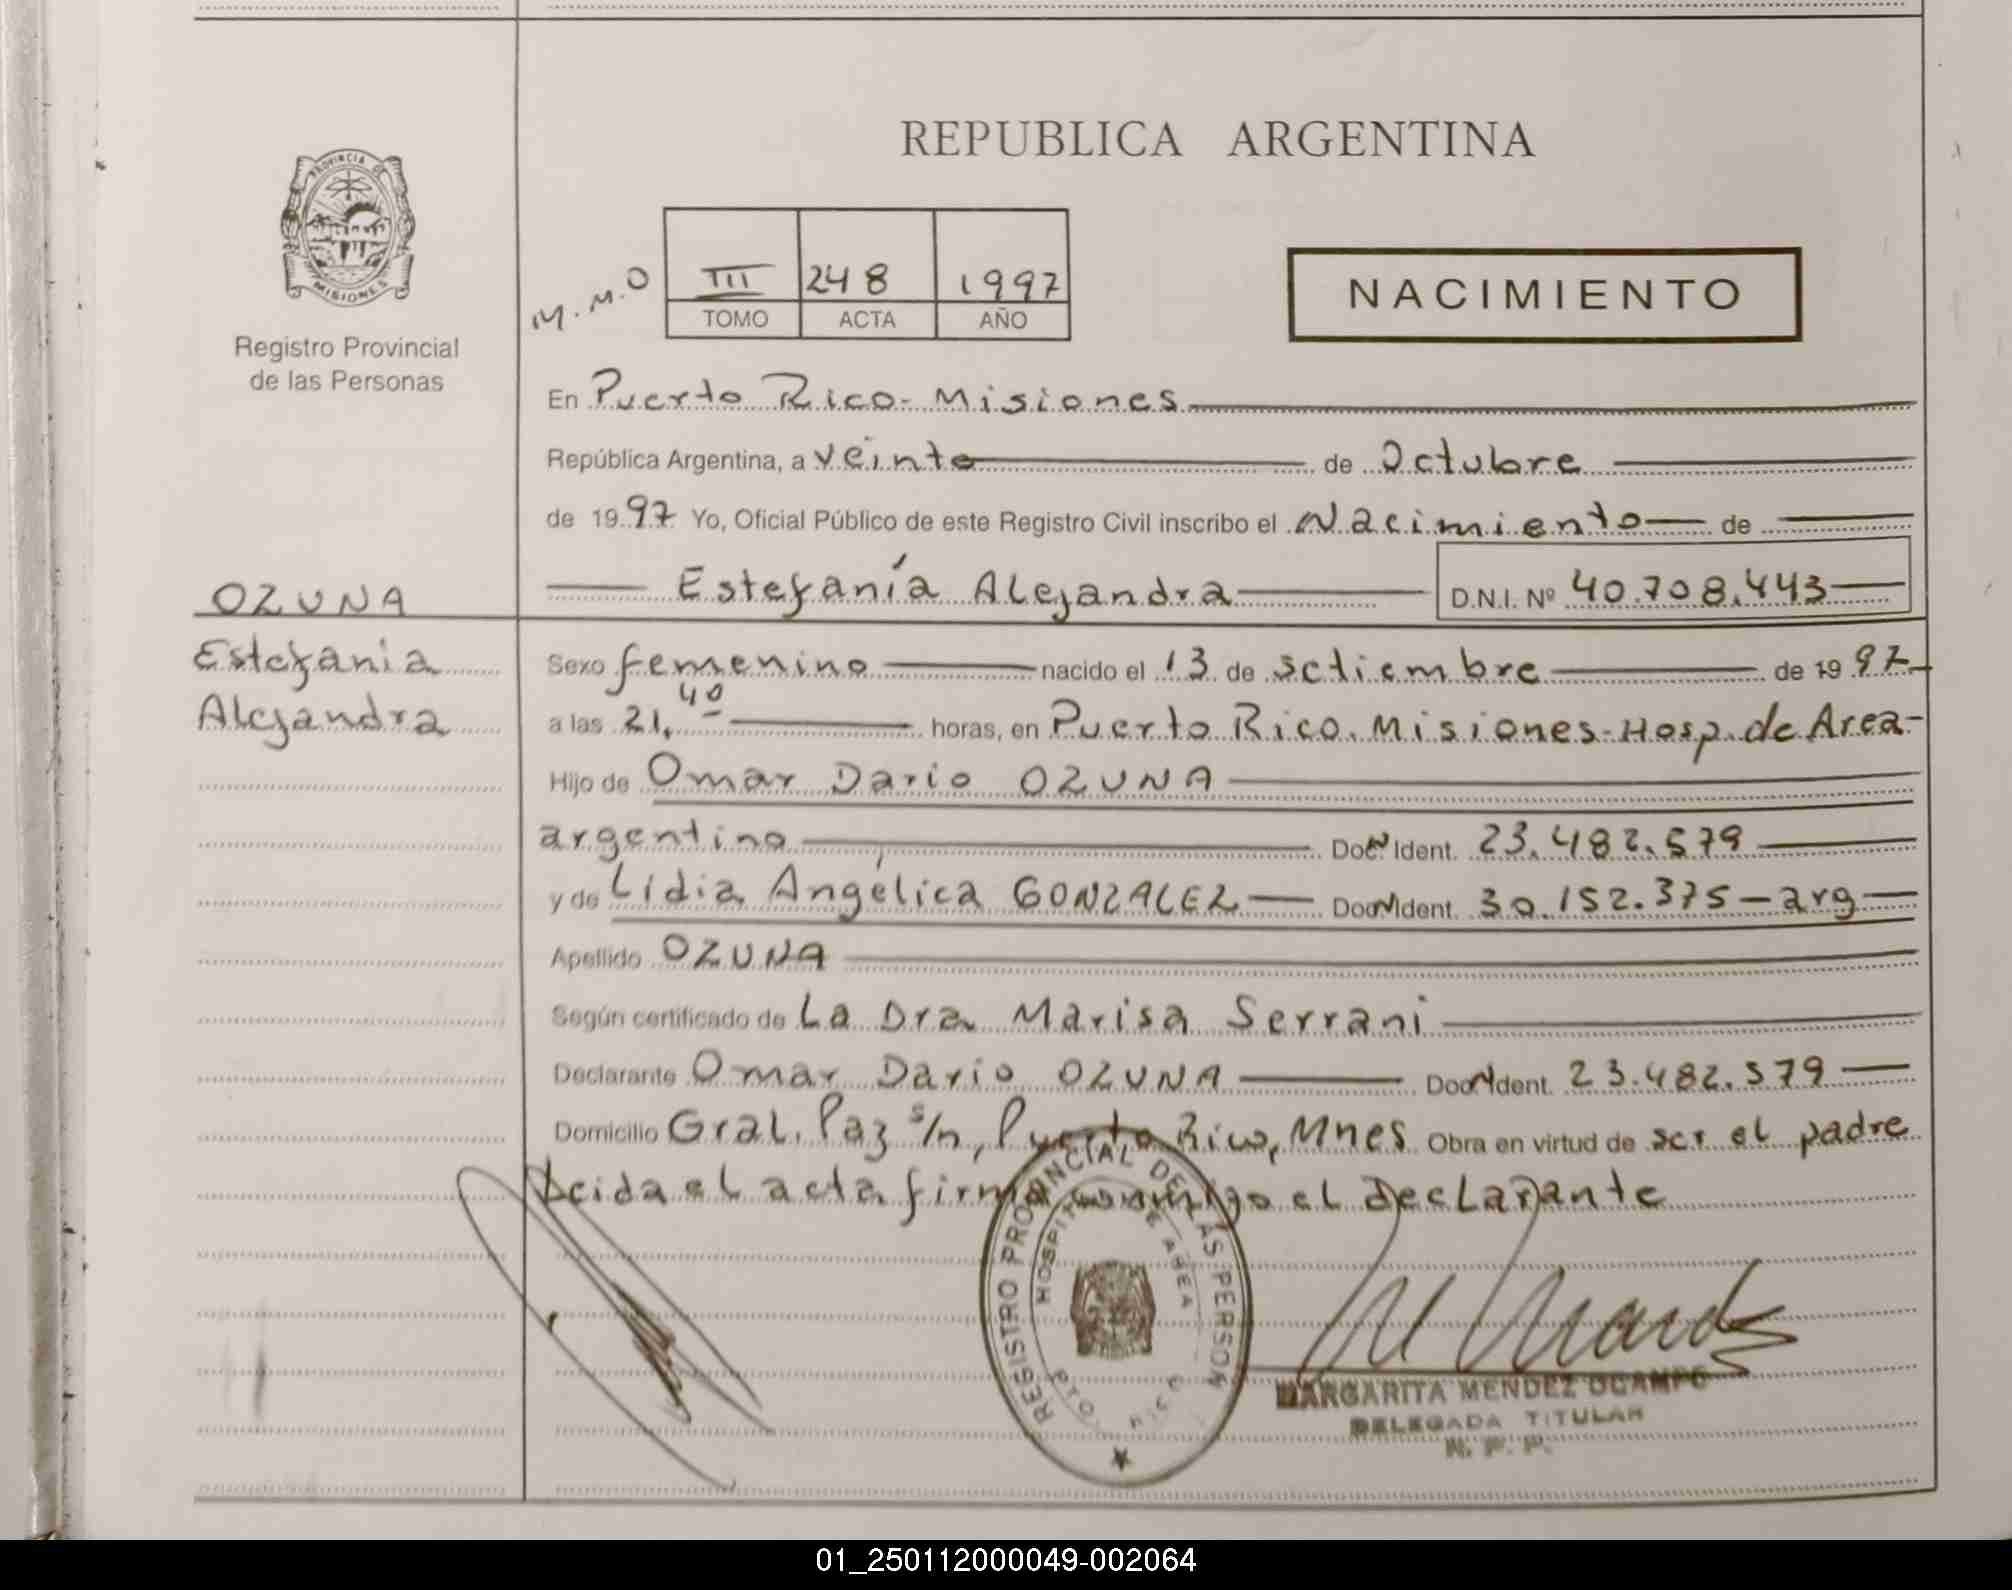 REPUBLICA ARGENTINA
PROVINCIA DE
MISIONES
Registro Provincial
de las Personas
M.M.O
III 248 1997
TOMO ACTA AÑO
NACIMIENTO
En Puerto Rico - Misiones
República Argentina, a veinte de Octubre
de 1997 Yo, Oficial Público de este Registro Civil inscribo el Nacimiento de
Estefanía Alejandra D.N.I. Nº 40.708.443
OZUNA
Estefania
Alejandra
Sexo femenino nacido el 13 de setiembre de 1997
a las 21,40 horas, en Puerto Rico. Misiones - Hosp. de Area -
Hijo de Omar Dario OZUNA
argentino Doc. Ident. 23.482.579
y de Lidia Angélica GONZALEZ Doc. Ident. 30.152.375 - arg
Apellido OZUNA
Según certificado de La Dra Marisa Serrani
Declarante Omar Dario OZUNA Doc. Ident. 23.482.579
Domicilio Gral. Paz s/n, Puerto Rico, Mnes. Obra en virtud de ser el padre
Leida el acta firma conmigo el declarante
REGISTRO PROVINCIAL DE LAS PERSON
HOSPITAL DE AREA
PTO RICO
MARGARITA MENDEZ OCAMPO
DELEGADA TITULAR
R. P. P.
01_250112000049-002064